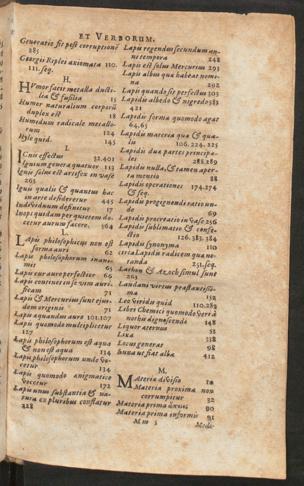 ET VERBORUM.
Generatio fit post corruptionẽ
285
Georgii Riplei axiomata 110.
111. seq.
H.
HVmor facit metalla ducti-
lia & fusilia 15
Humor naturalium corporũ
duplex est 18
Humidum radicale metallo-
rum 124
Hyle quid. 145
I.
IGnis effectus 32.401
Ignium genera quatuor 113
Ignis solus est artifex in vase
291
Ignis qualis & quantus hac
in arte desideretur 445
Individuum definitur 17
Inopi quidam per quietem do-
cetur aurum facere. 364
L.
LApis philosophicus non est
forma auri 62
Lapis philosophorum inani-
mis 65
Lapis cur auro perfectior 69
Lapis continet in se vim auri-
ficam 71
Lapis & Mercurius sunt ejus-
dem originis 71
Lapis aquandus auro 101.107
Lapis quomodo multiplicetur
127
Lapis philosophorum est aqua
& non est aqua 134
Lapis philosophorum unde vo-
cetur 134
Lapis quomodo ænigmatice
vocetur 172
Lapis unus substantia & na-
tura ex pluribus conflatur
228
Lapis regendus secundum an-
ni tempora 248
Lapis est solus Mercurius 293
Lapis albus qua habeat nomi-
na 292
Lapis quando sit perfectus 303
Lapidis albedo & nigredo 383
421
Lapidis forma quomodo agat
64.65
Lapidis materia quæ & qua-
lis 106.224.225
Lapidis dua partes principa-
les 288.289
Lapidis nulla, & tamen aper-
ta mentio 88
Lapidis operationes 174.274
& seq.
Lapidis progignendi ratio un-
de 69
Lapidis procreatio in vase 256
Lapidis sublimatio & confe-
ctio 126.383.384
Lapidis synonyma 110
Lapidis radicem qua-
randa 251.seq.
Laton & Azoch simul sunt
263
Laudani virtus præstantissi-
ma 152
Leo viridis quid 110.289
Libri Chemici quomodo vera à
nothis dignoscendi 148
Liquor aternus 51
Lixa 238
Locus generat 98
Luna ut fiat alba 412
M.
MAteria divisio 10
Materia proxima non
corrumpitur 32
Materia prima 90
Materia prima informis 91
Mm 3 Medi-